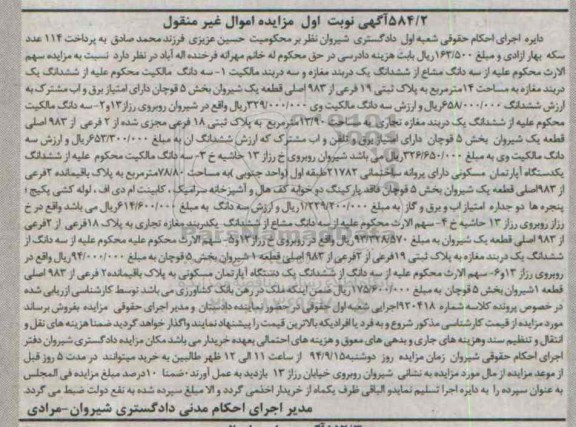 ۵۸۴/۲آگهی نوبت اول مزایده اموال غیر منقول
دایره اجرای احکام حقوقی شعبه اول دادگستری شیروان نظر بر محکومیت حسین عزیزی فرزند محمد صادق به پرداخت ۱۱۴ عدد
سکه بهار ازادی و مبلغ ۱۶۳/۵۰۰ریال بابت هزینه دادرسی در حق محکوم له خانم مهرانه فرخنده اله آباد در نظر دارد نسبت به مزایده سهم
الارث محکوم علیه از سه دانگ مشاع از ششدانگ یک دربند مغازه و سه دربند مالکیت ۱- سه دانگ مالکیت محکوم علیه از ششدانگ یک
دربند مغازه به مساحت ۱۴مترمربع به پلاک ثبتی ۱۹ فرعی از ۹۸۳ اصلی قطعه یک شیروان بخش ۵ قوچان دارای امتیاز برق و اب مشترک به
ارزش ششدانگ ۶۵۸/۰۰۰/۰۰۰ریال و ارزش سه دانگ مالکیت وی ۳۲۹/۰۰۰/۰۰۰ریال واقع در شیروان روبروی رزاز۱۳و۲-سه دانگ مالکیت
محکوم علیه از ششدانگ یک دربند مغازه تجاری به مساحت ۱۳/۹۰مترمربع به پلاک ثبتی ۱۸ فرعی مجزی شده از ۲ فرعی از ۹۸۳ اصلی
قطعه یک شیروان بخش ۵ قوچان دارای امتیاز برق و تلفن و اب مشترک که ارزش ششدانگ ان به مبلغ ۶۵۳/۳۰۰/۰۰۰ریال و ارزش سه
دانگ مالکیت وی به مبلغ ۳۲۶/۶۵۰/۰۰۰ریال می باشد شیروان روبروی خ رزاز ۱۳ حاشیه خ ۳- سه دانگ مالکیت محکوم علیه از ششدانگ
یکدستگاه آپارتمان مسکونی دارای پروانه ساختمانی ۲۱۷۸۲طبقه اول (واحد جنوبی )به مساحت ۷۸/۸۰مترمربع به پلاک باقیمانده ۲فرعی
از ۹۸۳اصلی قطعه یک شیروان بخش ۵ قوچان فاقد پارکینگ دو خوابه کف هال و آشپزخانه سرامیک ، کابینت ام دی اف ، لوله کشی پکیج ؛
پنجره ها دو جداره امتیاز اب و برق و گاز به مبلغ ۱/۲۲۹/۲۰۰/۰۰۰ریال و ارزش سه دانگ به مبلغ ۶۱۴/۶۰۰/۰۰۰ریال می باشد واقع در خ
رزاز روبروی رزاز ۱۳ حاشیه خ ۴- سهم الارث محکوم علیه از سه دانگ مشاع از ششدانگ یکدربند مغازه تجاری به پلاک ۱۸فرعی از ۲فرعی
از ۹۸۳ اصلی قطعه یک شیروان به مبلغ ۹۳/۳۲۸/۵۷۰ریال واقع در روبروی خ رزاز ۱۳و۵- سهم الارث محکوم علیه محکوم علیه از سه دانگ از
ششدانگ یک دربند مغازه به پلاک ثبتی ۱۹فرعی از ۲فرعی از ۹۸۳ اصلی قطعه ۱شیروان بخش ۵ قوچان به مبلغ ۹۴/۰۰۰/۰۰۰ریال واقع در
روبروی رزاز ۱۳و۶-سهم الارث محکوم علیه از سه دانگ از ششدانگ یک دستگاه آپارتمان مسکونی به پلاک باقیمانده۲ فرعی از ۹۸۳ اصلی
قطعه ۱شیروان بخش ۵ قوچان به مبلغ ۱۷۵/۶۰۰/۰۰۰ریال ضمن اینکه ملک در رهن بانک کشاورزی می باشد توسط کارشناسی ارزیابی شده
در خصوص پرونده کلاسه شماره ۹۳۰۴۱۸اجرایی شعبه اول حقوقی در حضور نماینده دادستان و مدیر اجرای حقوقی مزایده بفروش برساند
مورد مزایده از قیمت کارشناسی مذکور شروع و به فرد یا افرادیکه بالاترین قیمت را پیشنهاد نمایند واگذار خواهد گردید ضمنا هزینه های نقل و
انتقال و تنظیم سند وهزینه های جاری و بدهی های معوق و هزینه های احتمالی بعهده خریدار می باشد مکان مزایده دادگستری شیروان دفتر
اجرای احکام حقوقی شیروان زمان مزایده روز دوشنبه۹۴/۹/۱۵ از ساعت ۱۱ الی ۱۲ ظهر طالبین به خرید میتوانند در مدت ۵ روز قبل
از موعد مزایده از مال مورد مزایده به نشانی شیروان روبروی خیابان رزاز ۱۳ بازدید به عمل آورند .ضمنا ۱۰درصد مبلغ مزایده فی المجلس
به عنوان سپرده را به دایره اجرا تسلیم نمایدو الباقی ظرف یکماه از خریدار اخذمی گردد و الا مبلغ سپرده شده به نفع دولت ضبط می گردد.
مدیر اجرای احکام مدنی دادگستری شیروان-مرادی